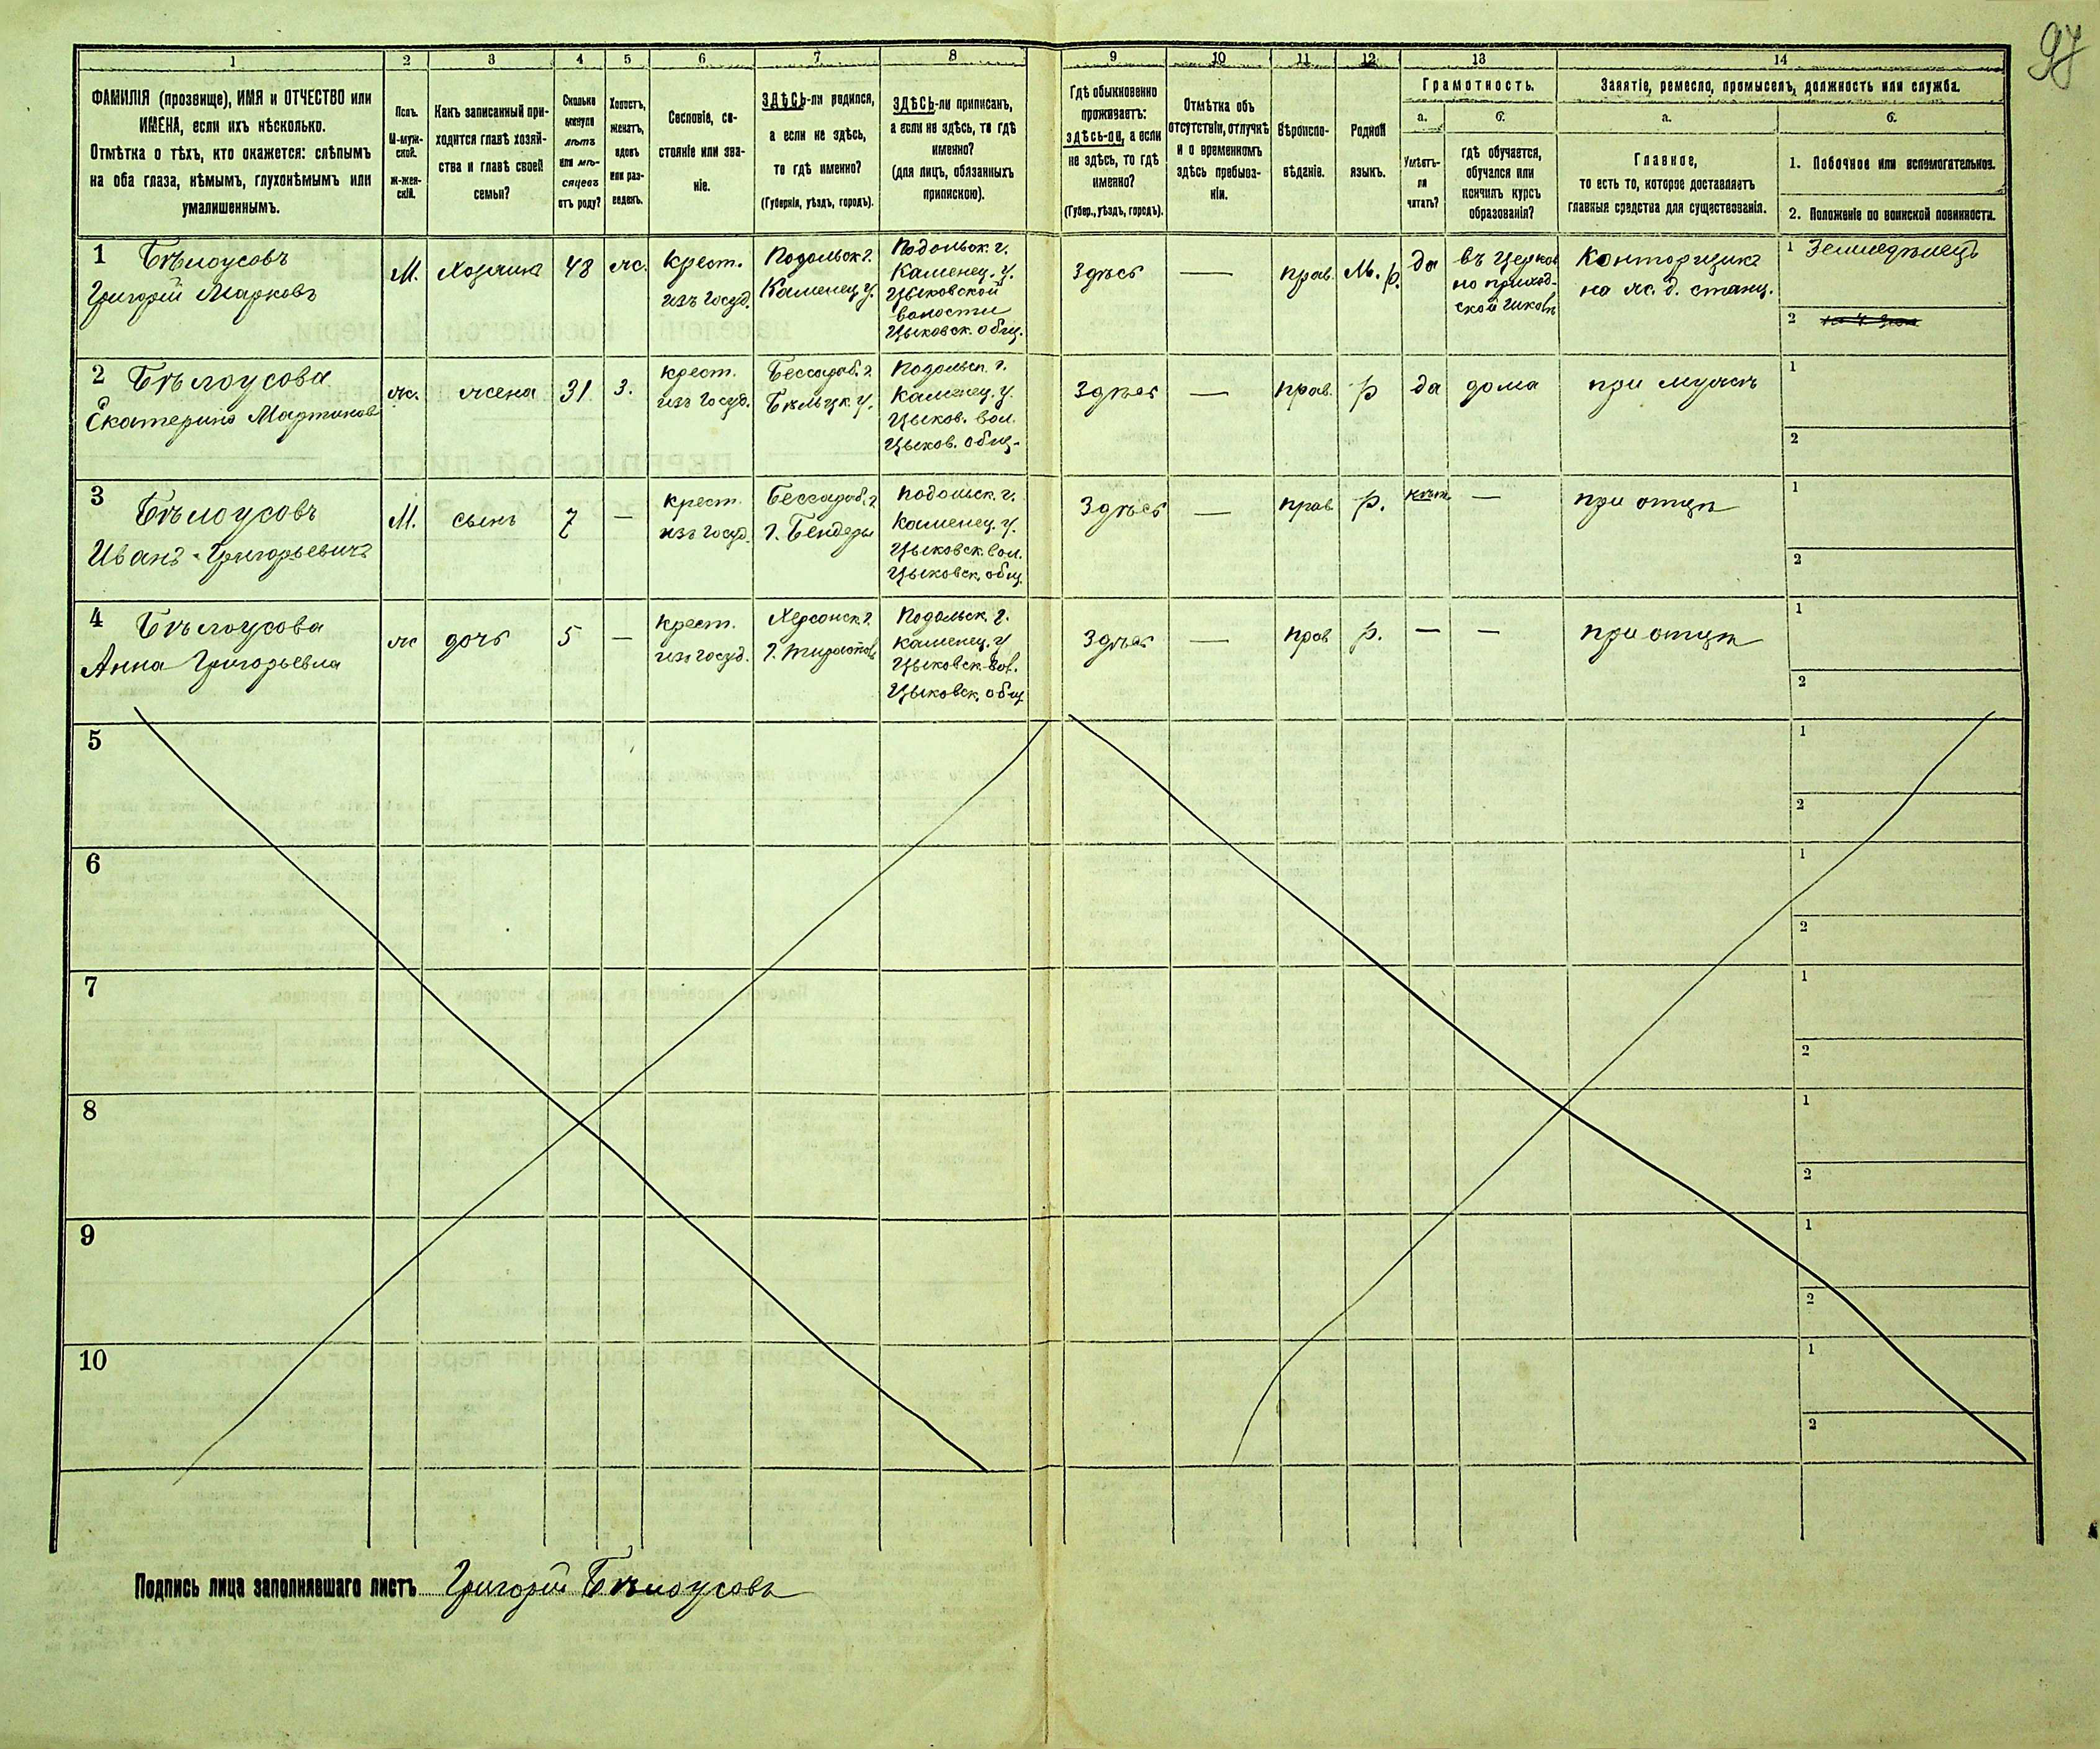 97
1 2 3 4 5 6 7 8 9 10 11 12 13 14
ФАМИЛІЯ (прозвище), ИМЯ и ОТЧЕСТВО или
ИМЕНА, если ихъ нѣсколько.
Отмѣтка о тѣхъ, кто окажется: слѣпымъ
на оба глаза, нѣмымъ, глухонѣмымъ или
умалишеннымъ.
Полъ.
М-муж-
ской.
ж-жен-
скій.
Какъ записанный при-
ходится главѣ хозяй-
ства и главѣ своей
семьи?
Сколько
минуло
лѣтъ
или мѣ-
сяцевъ
отъ роду?
Холостъ,
женатъ,
вдовъ
или раз-
веденъ.
Сословіе, со-
стояніе или зва-
ніе.
ЗДѢСЬ-ли родился,
а если не здѣсь,
то гдѣ именно?
(Губернія, уѣздъ, городъ).
ЗДѢСЬ-ли приписанъ,
а если не здѣсь, то гдѣ
именно?
(для лицъ, обязанныхъ
припискою).
Гдѣ обыкновенно
проживаетъ:
здѣсь-ли, а если
не здѣсь, то гдѣ
именно?
(Губер., уѣздъ, городъ).
Отмѣтка объ
отсутствіи, отлучкѣ
и о временномъ
здѣсь пребыва-
ніи.
Вѣроиспо-
вѣданіе.
Родной
языкъ.
Грамотность.
а.
Умѣетъ-
ли
читать?
б.
гдѣ обучается,
обучался или
кончилъ курсъ
образованія?
Занятіе, ремесло, промыселъ, должность или служба.
а.
Главное,
то есть то, которое доставляетъ
главныя средства для существованія.
б.
1. Побочное или вспомогательное.
2. Положеніе по воинской повинности.
1 Бѣлоусовъ
Григорій Марковъ
М.
Хозяинъ
48
ж.
Крест.
изъ госуд.
Подольск г.
Каменец. у.
Подольск. г.
Каменец. у.
Цыковской
волости
Цыковск. общ.
Здѣсь
—
прав.
М. р.
да
въ Церков
но приход-
ской школѣ
Конторщикъ
на ж. д. станц.
1 Земледѣлецъ
2
2 Бѣлоусова
Екатерина Мартинова
ж.
жена
31.
З.
крест.
изъ госуд.
Бессараб. г.
Бѣльцк. у.
Подольск. г.
Каменец. у.
Цыков. вол.
Цыков. общ.
Здѣсь
—
прав.
р
да
дома
при мужѣ
1
2
3 Бѣлоусовъ
Иванъ Григорьевичъ
М.
сынъ
7
—
крест.
изъ госуд.
Бессараб. г.
г. Бендеры
Подольск. г.
Каменец. у.
Цыковск. вол.
Цыковск. общ.
Здѣсь
—
прав
р.
нѣт.
—
при отцѣ
1
2
4 Бѣлоусова
Анна Григорьевна
ж
дочь
5
—
крест.
изъ госуд.
Херсонск г.
г. Тирасполь
Подольск. г.
Каменец. у
Цыковск. вол.
Цыковск. общ
Здѣсь
—
прав
р.
—
—
при отцѣ
1
2
5
1
2
6
1
2
7
1
2
8
1
2
9
1
2
10
1
2
Подпись лица заполнявшаго листъ Григорій Бѣлоусовъ